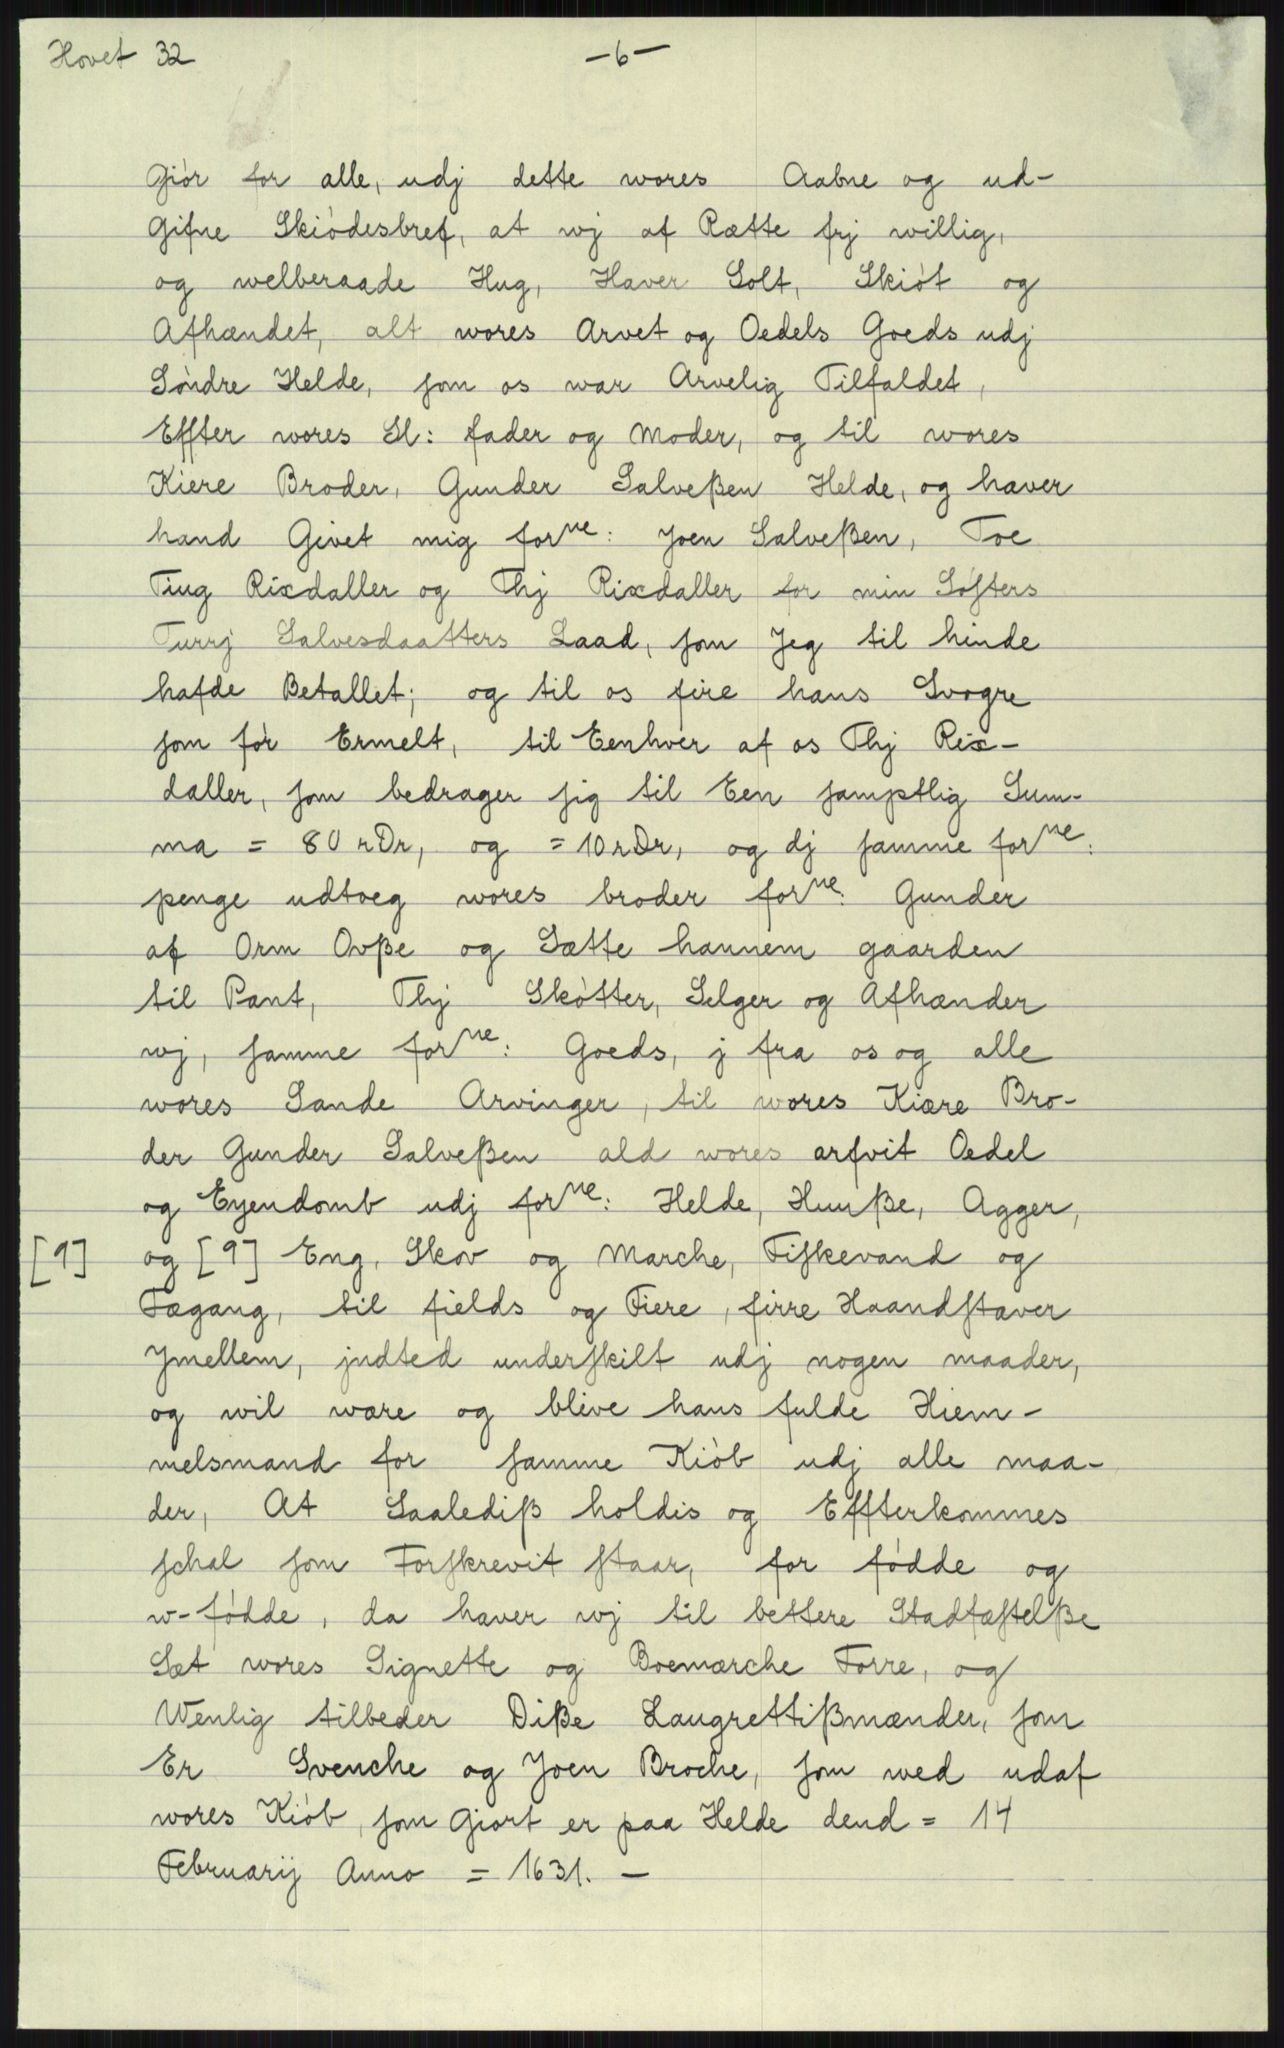 Hovet 32
-6-
Giör for alle, udj dette wores Aabne og ud-
Gifne Skiödesbref, at wj af Rætte frj willig,
og welberaade Hug, Haver Solt, Skiöt og
Afhændet, alt wores Arvet og Oedels Goeds udj
Söndre Helde, som os war Arvelig Tilfaldet,
Effter wores Sl: fader og Moder, og til wores
Kiere Broder, Gunder Salveßen Helde, og haver
hand Givet mig forne: Joen Salveßen, Toe
Tiug Rixdaller og Thj Rixdaller for min Søsters
Turrj Salvesdaatters Laad, som Jeg til hinde
hafde Betallet; og til os fire hans Svogre
som för Ermelt, til Eenhver af os Thj Rix-
daller, som bedrager sig til Een samptlig Sum-
ma = 80 rDr, og = 10 rDr, og dj samme forne:
penge udtoeg wores broder forne: Gunder
af Orm Ovße og Sætte hannem gaarden
til Pant, Thj Skötter, Selger og Afhænder
wj, samme forne: Goeds, j fra os og alle
wores Sande Arvinger, til wores Kiære Bro-
der Gunder Salveßen ald wores arfvit Oedel
og Eyendomb udj forne: Helde, Huuße, Agger,
[9] og [9] Eng, Skov og Marche, Fiskevand og
Fægang, til fields og Fiere, firre Haandstaver
Ymellem, jndted underskilt udj nogen maader,
og wil wære og blive hans fulde Hiem-
melsmand for samme Kiöb udj alle maa-
der, At Saalediß holdis og Effterkommes
schal som Forskrevit staar, for födde og
w-födde, da haver wj til bettere Stadfæstelße
Sæt wores Signette og Boemærche Forre, og
Wenlig tilbeder Diße Laugrettißmænder, som
Er Svenche og Joen Broche, som wed udaf
wores Kiöb, som Giort er paa Helde dend = 14
Februarij Anno = 1631. -